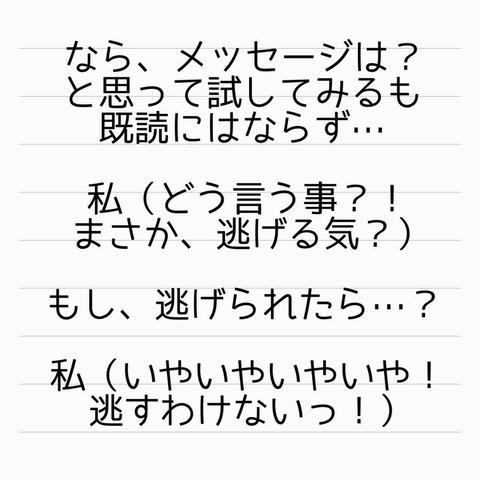 なら、メッセージは？
と思って試してみるも
既読にはならず…
私（どう言う事？！
まさか、逃げる気？）
もし、逃げられたら…？
私（いやいやいやいや！
逃すわけないっ！）